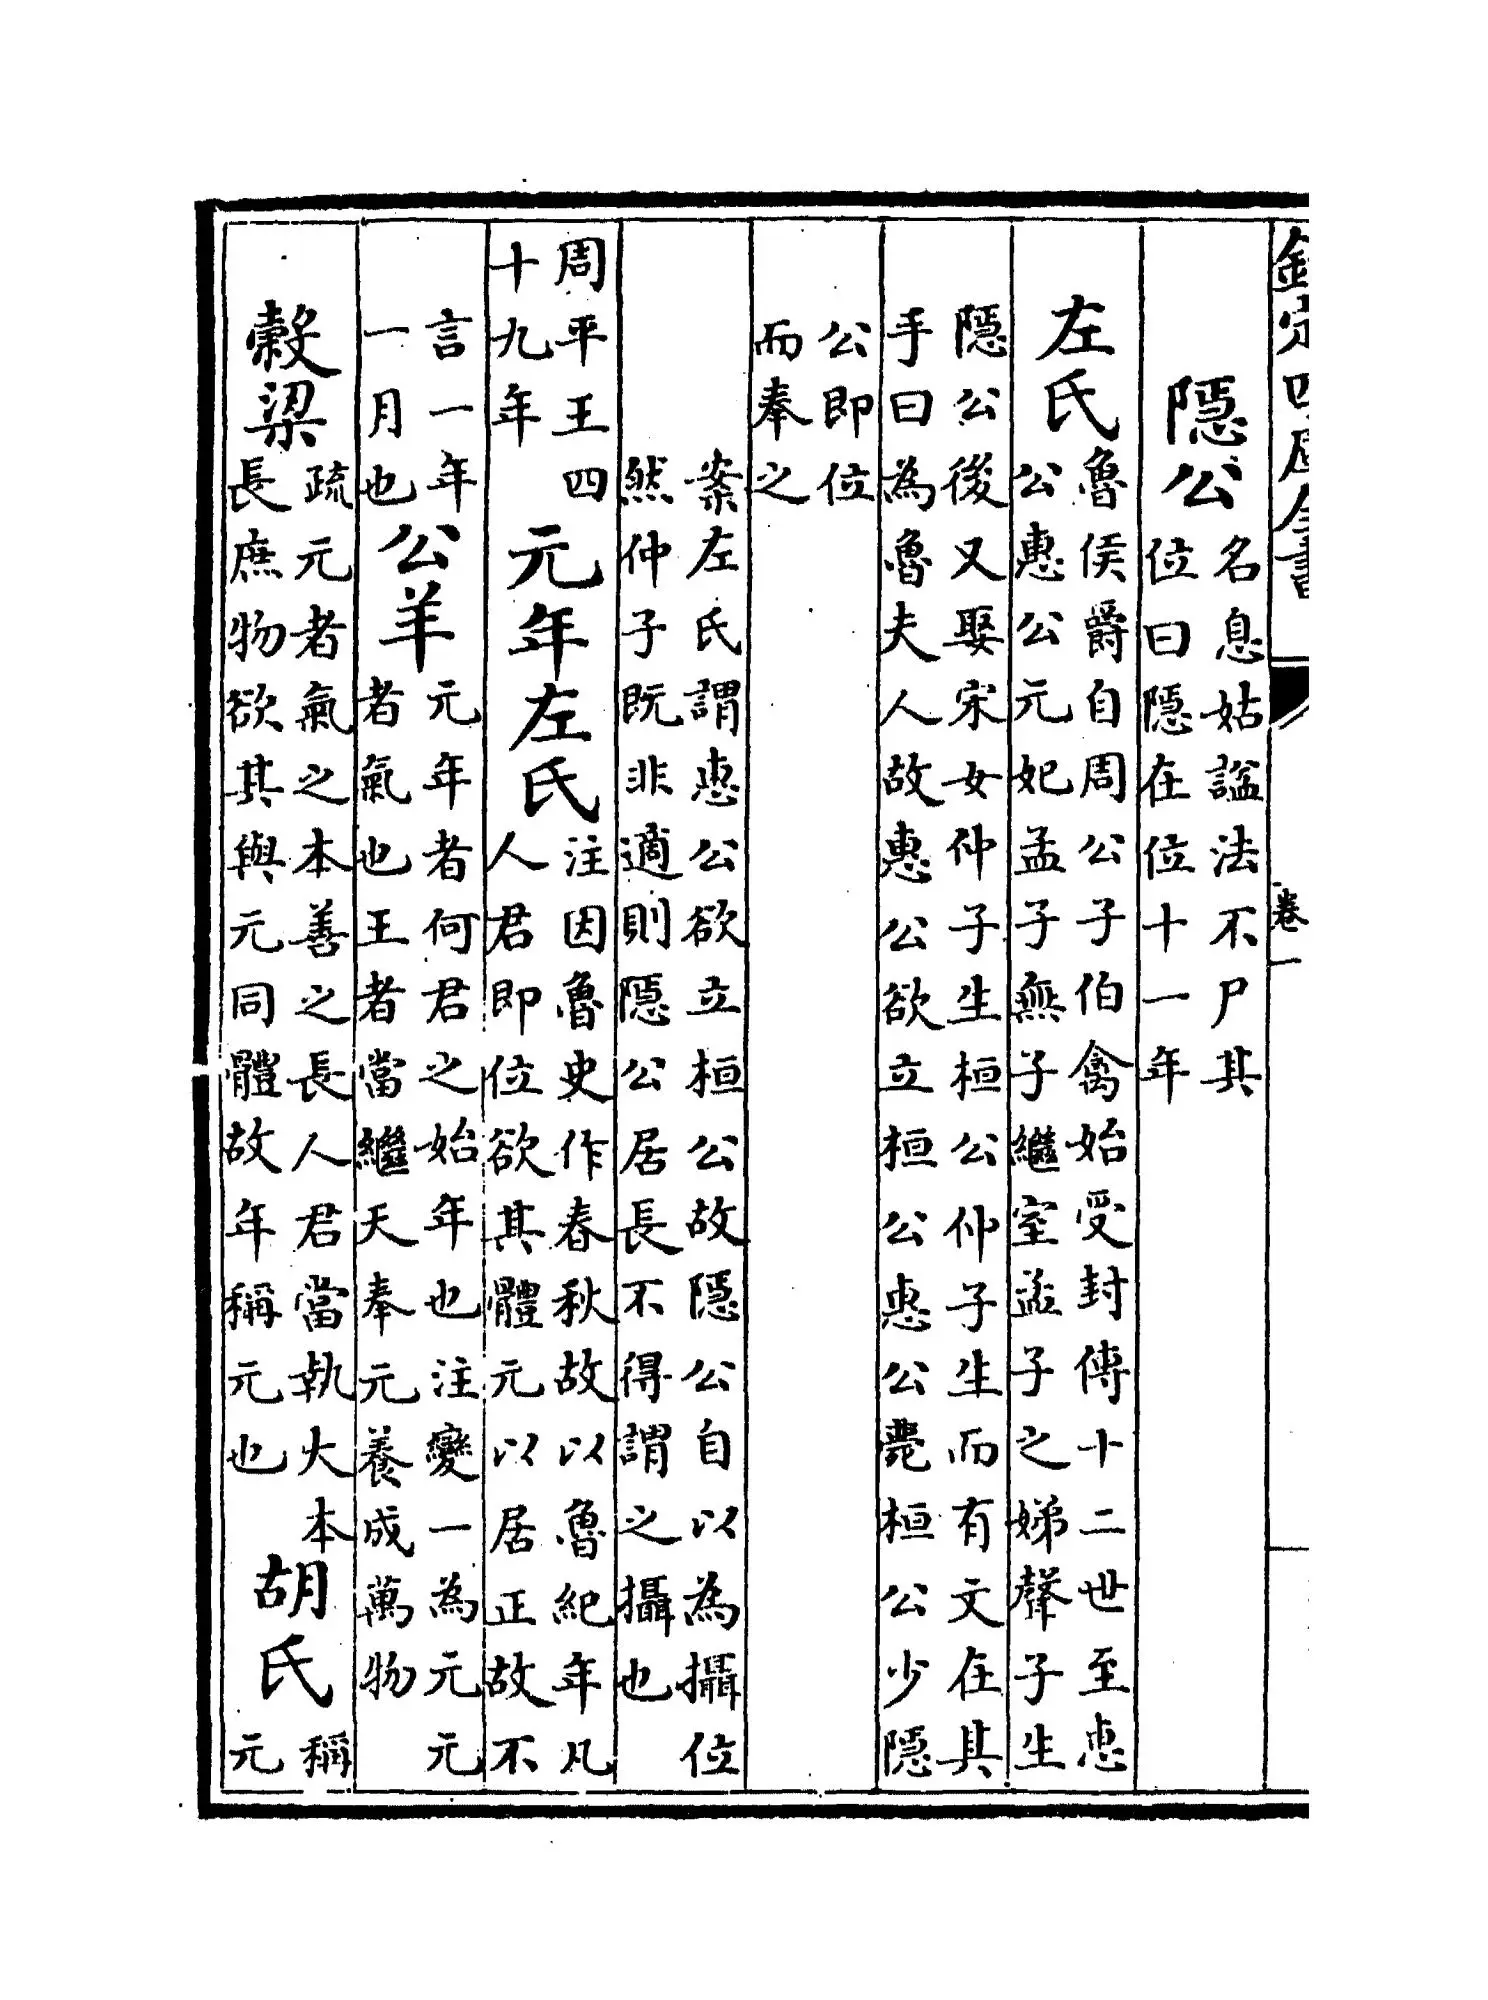 欽定四庫全書 卷一
隱公名息姑諡法不尸其
位曰隱在位十一年
左氏魯侯爵自周公子伯禽始受封傳十二世至惠
公惠公元妃孟子無子繼室孟子之娣聲子生
隱公後又娶宋女仲子生桓公仲子生而有文在其
手曰為魯夫人故惠公欲立桓公惠公薨桓公少隱
公即位
而奉之
案左氏謂惠公欲立桓公故隱公自以為攝位
然仲子既非適則隱公居長不得謂之攝也
周平王四
十九年
元年左氏注因魯史作春秋故以魯紀年凡
人君即位欲其體元以居正故不
言一年
一月也
公羊元年者何君之始年也注變一為元元
者氣也王者當繼天奉元養成萬物
穀梁疏元者氣之本善之長人君當執大本
長庶物欲其與元同體故年稱元也
胡氏稱
元